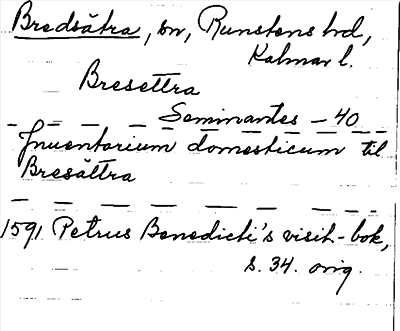 Bredsätra, sn, Runstens hd,
Kalmar l.
Bresettra
Seminantes – 40
Inuentarium domesticum til
Bresättra
1591 Petrus Benedicti's visit-bok,
s. 34. orig.